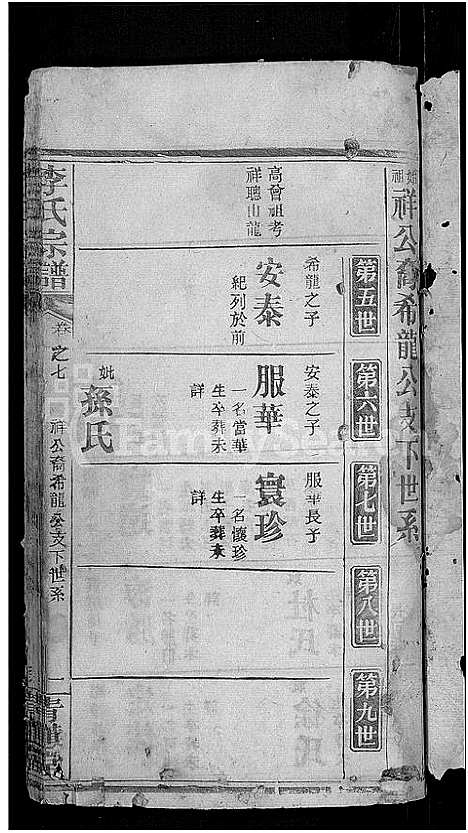 始祖祥公裔希龍公支下世系
第五世
第六世
第七世
第八世
第九世
高曾祖考
祥聰山龍
希龍之子
安泰
紀列於前
安泰之子
服華
一名當華
生卒葬未
詳
妣
孫氏
服華長子
寰珍
一名懷珍
生卒葬未
詳
杜氏
徐氏
李氏宗譜
卷之七
祥公裔希龍公支下世系
一
FamilySearch